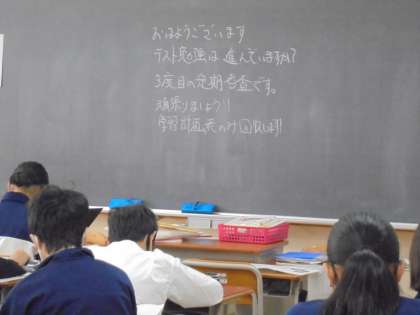 おはようございます
テスト勉強は進んでいますか?
3度目の定期考査です。
頑張りましょう!!
学習計画表のみ します!!